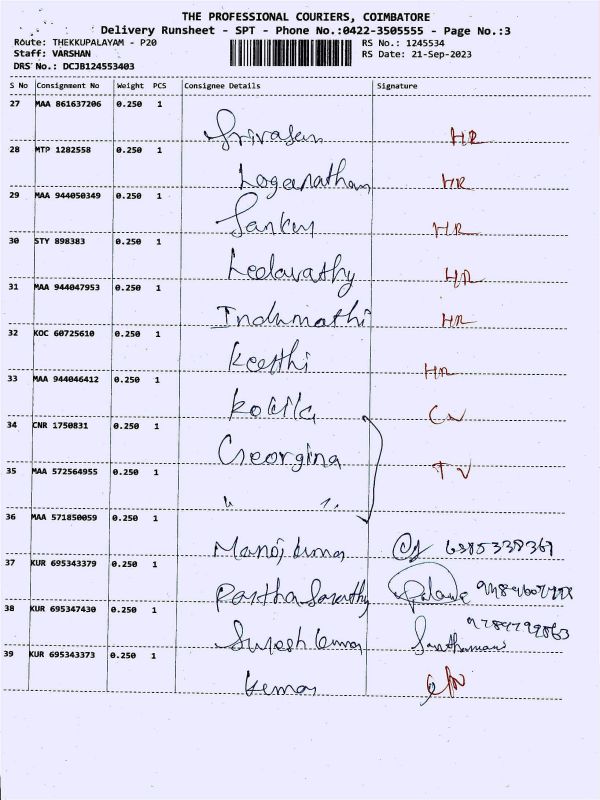 THE PROFESSIONAL COURIERS, COIMBATORE
Delivery Runsheet - SPT - Phone No.:0422-3505555 - Page No.:3
Route: THEKKUPALAYAM - P20 RS No.: 1245534
Staff: VARSHAN RS Date: 21-Sep-2023
DRS No.: DCJB124553403
S No Consignment No Weight PCS Consignee Details Signature
27 MAA 861637206 0.250 1
Srivasan HR
28 MTP 1282558 0.250 1
Loganathan HR
29 MAA 944050349 0.250 1
HR
30 STY 898383 0.250 1
Leelavathy HR
31 MAA 944047953 0.250 1
Indumathi HR
32 KOC 60725610 0.250 1
Keerthi HR
33 MAA 944046412 0.250 1
Kokila
34 CNR 1750831 0.250 1
Georgina TV
35 MAA 572564955 0.250 1
36 MAA 571850059 0.250 1
Manoj kumar 6385338369
37 KUR 695343379 0.250 1
Partha Sarathy
38 KUR 695347430 0.250 1
Suresh kumar
39 KUR 695343373 0.250 1